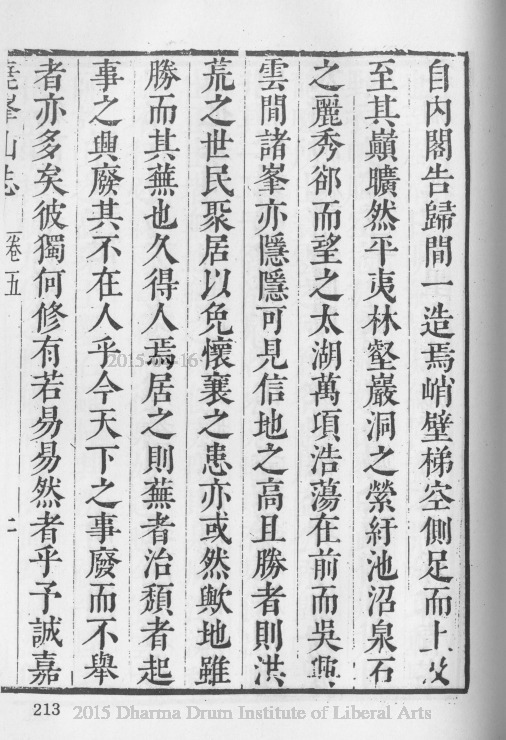 自內閣告歸間一造焉峭壁梯空側足而上及
至其巔曠然平夷林壑巖洞之縈紆池沼泉石
之麗秀郤而望之太湖萬項浩蕩在前而吳興
雲間諸峯亦隱隱可見信地之高且勝者則洪
荒之世民聚居以免懷襄之患亦或然歟地雖
勝而其蕪也久得人焉居之則蕪者治頽者起
事之興廢其不在人乎今天下之事廢而不舉
者亦多矣彼獨何修有若易易然者乎予誠嘉
堯峯山志 卷五
213 2015 Dharma Drum Institute of Liberal Arts